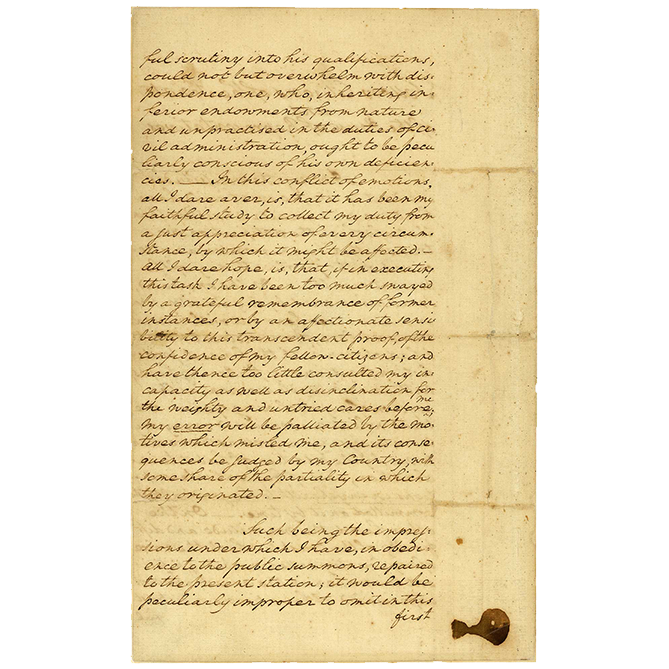 ful scrutiny into his qualifications,
could not but overwhelm with dis-
pondence, one, who, inheriting in-
ferior endowments from nature
and unpractised in the duties of ci-
vil administration, ought to be pecu
liarly conscious of his own deficien-
cies. — In this conflict of emotions,
all I dare aver, is, that it has been my
faithful study to collect my duty from
a just appreciation of every circum-
stance, by which it might be affected. —
All I dare hope, is, that, if in executing
this task I have been too much swayed
by a grateful remembrance of former
instances, or by an affectionate sensi
bility to this transcendent proof, of the
confidence of my fellow-citizens; and
have thence too little consulted my in-
capacity as well as disinclination for
the weighty and untried cares before me;
my error will be palliated by the mo-
tives which misled me, and its conse-
quences be judged by my Country, with
some share of the partiality in which
they originated. —
Such being the impres-
sions under which I have, in obedi-
ence to the public summons, repaired
to the present station; it would be
peculiarly improper to omit in this
first